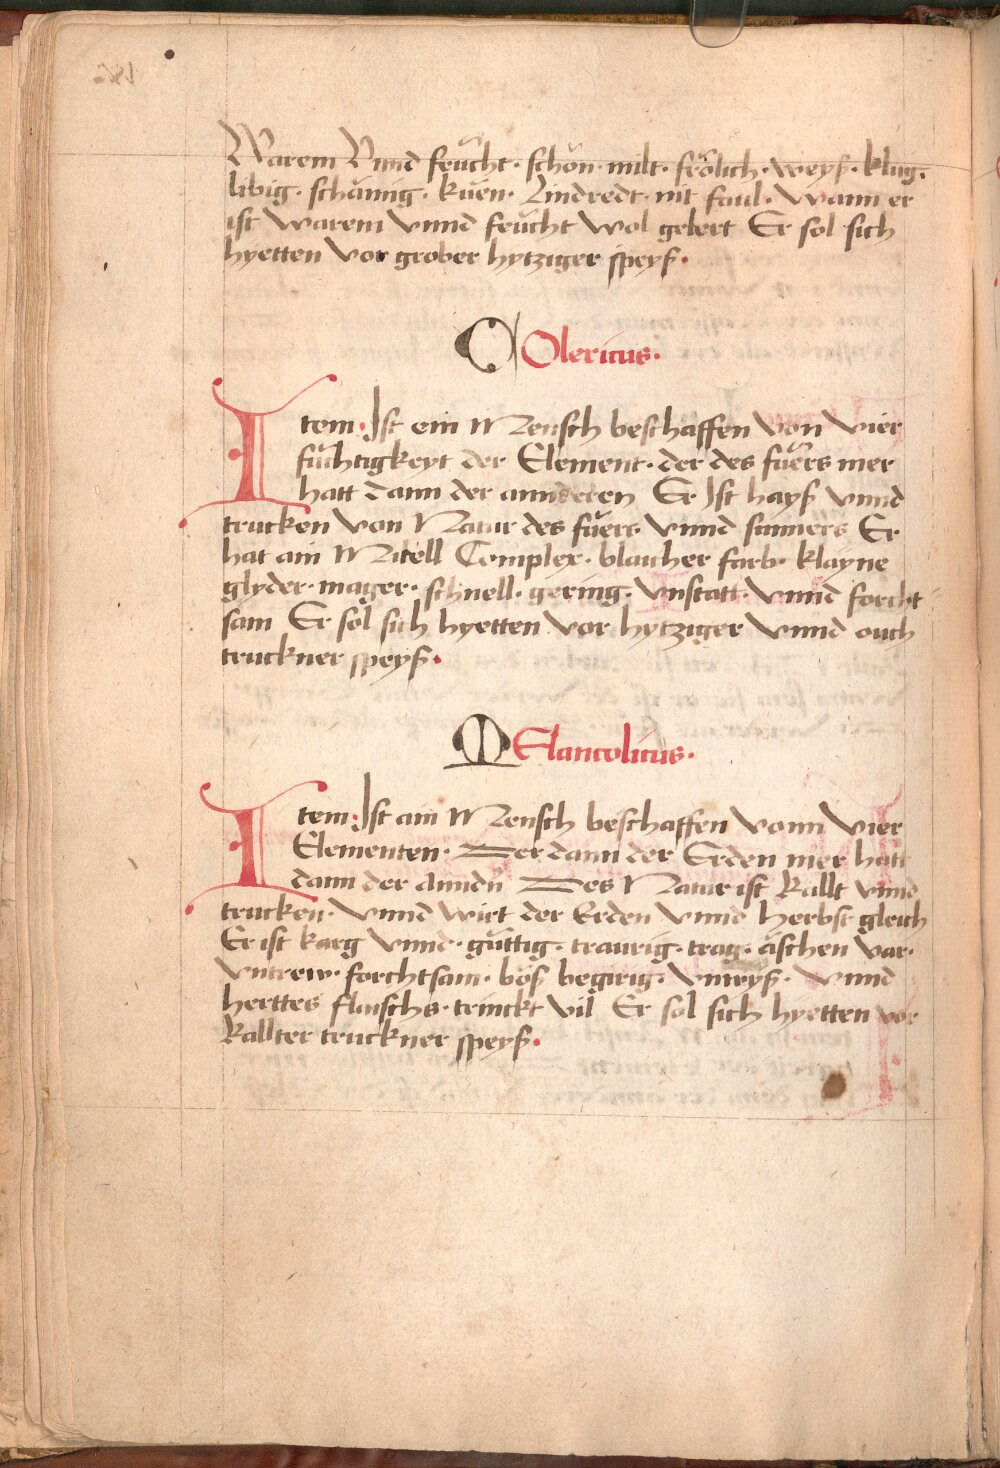 Warem Vnnd feücht · schön · milt · frölich · weyß · klug ·
libig · schämig · küen · Lindredt · nit faul · Wann er
ist Warem Vnnd feücht Wol gelert Er sol sich
hyetten Vor grober hytziger speyß ·
COlericus ·
Item · Ist ein Mensch beschaffen Von Vier
füchtigkeyt der Element · der des füers mer
hatt dann der annderen Er Ist hayß Vnnd
trucken Von Natur des füers Vnnd sumers Er
hat ain Mitell Complex · blaicher farb · klayne
glyder · mager · schnell · gering · Vnstätt · Vnnd forcht
sam Er sol sich hyetten Vor hytziger Vnnd ouch
truckner speyß ·
MElancolicus ·
Item · Ist ain Mensch beschaffen Vonn Vier
Elementen · Der dann der Erden mer hatt
dann der Anndn̄ Des Natur ist Kallt Vnnd
trucken · Vnnd Wirt der Erden Vnnd herbst gleich
Er ist karg Vnnd · güttig · traurig · trag · äschen Var ·
Vntrew · forchtsam · böß begirig · Vnwyß · Vnnd
herttes flaischs · trinckt Vil Er sol sich hyetten vor
Kallter truckner speyß ·